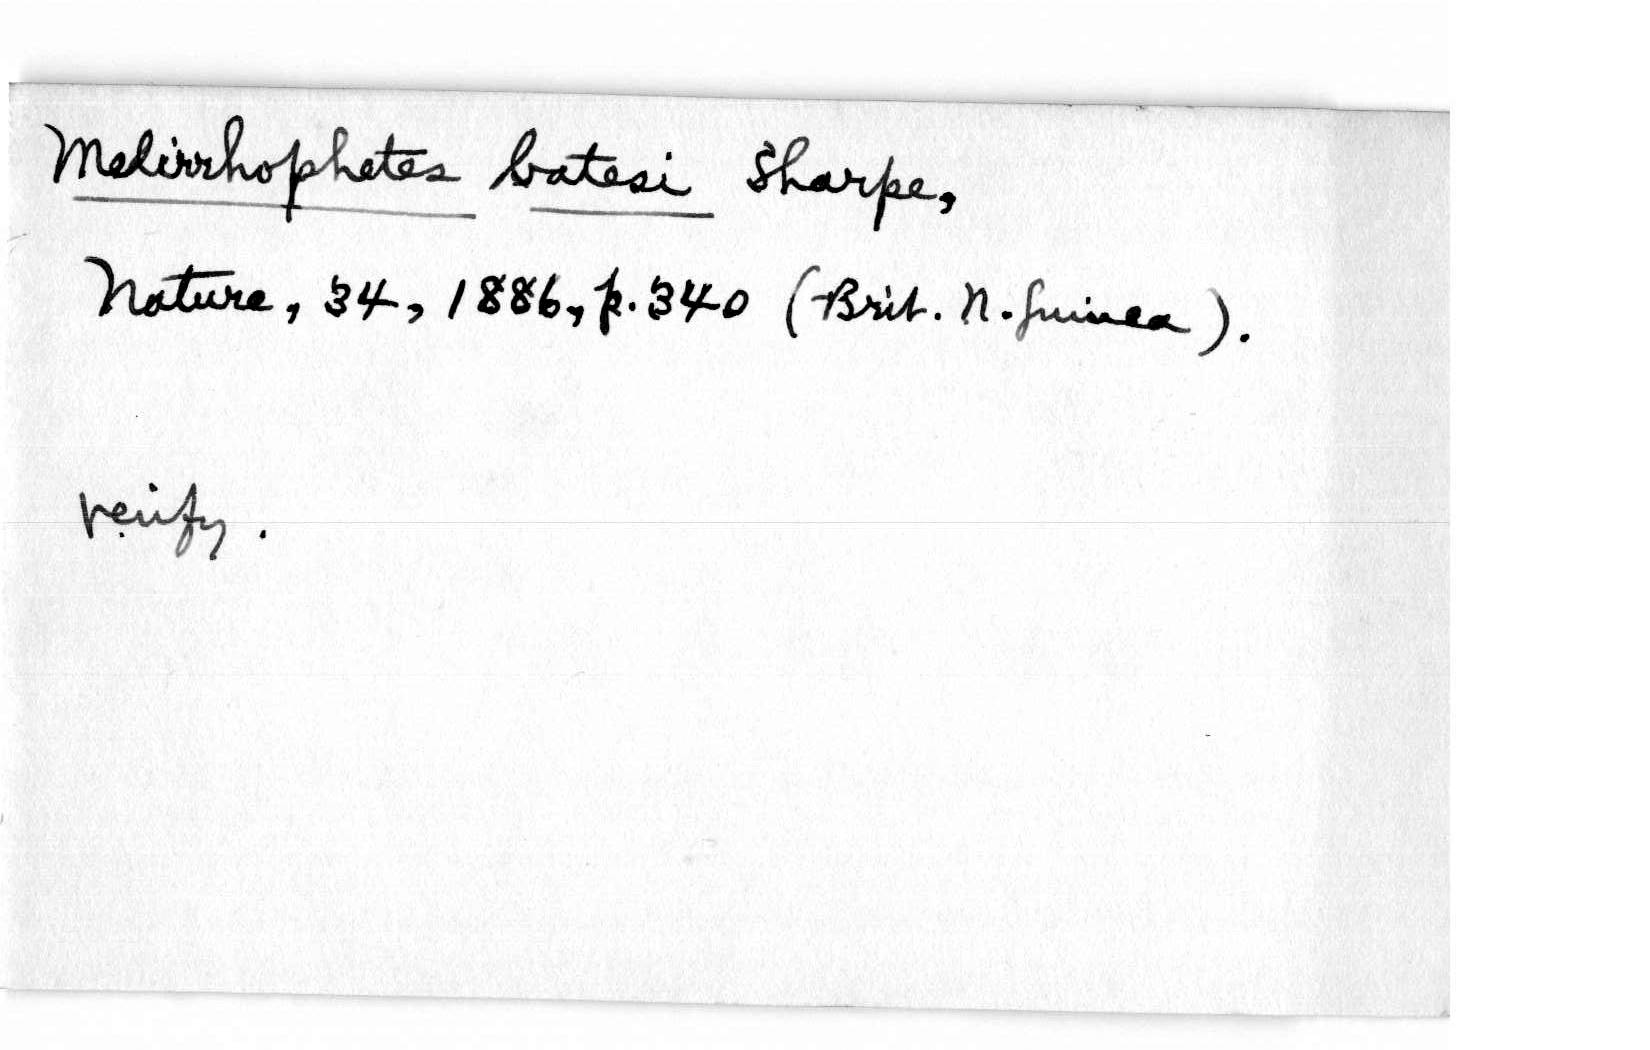 Melirrhophetes batesi Sharpe,
Nature, 34, 1886, p. 340 (Brit. N. Guinea).
verify.